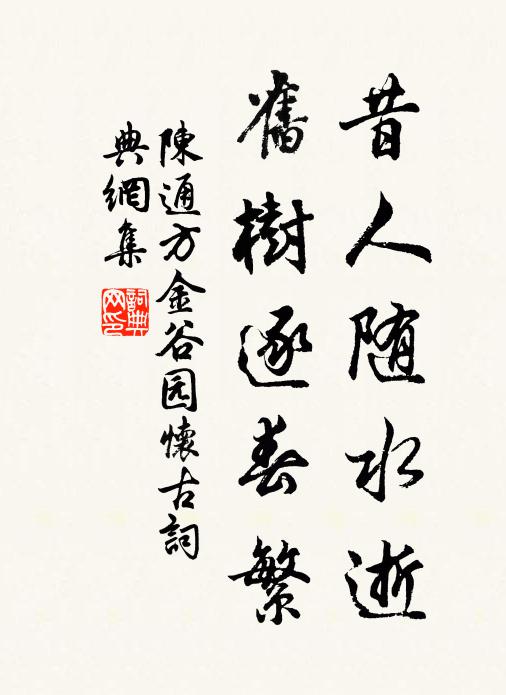 昔人随水逝
舊樹逐春繁
陳通方金谷园懷古詞
典網集
詞典
网印